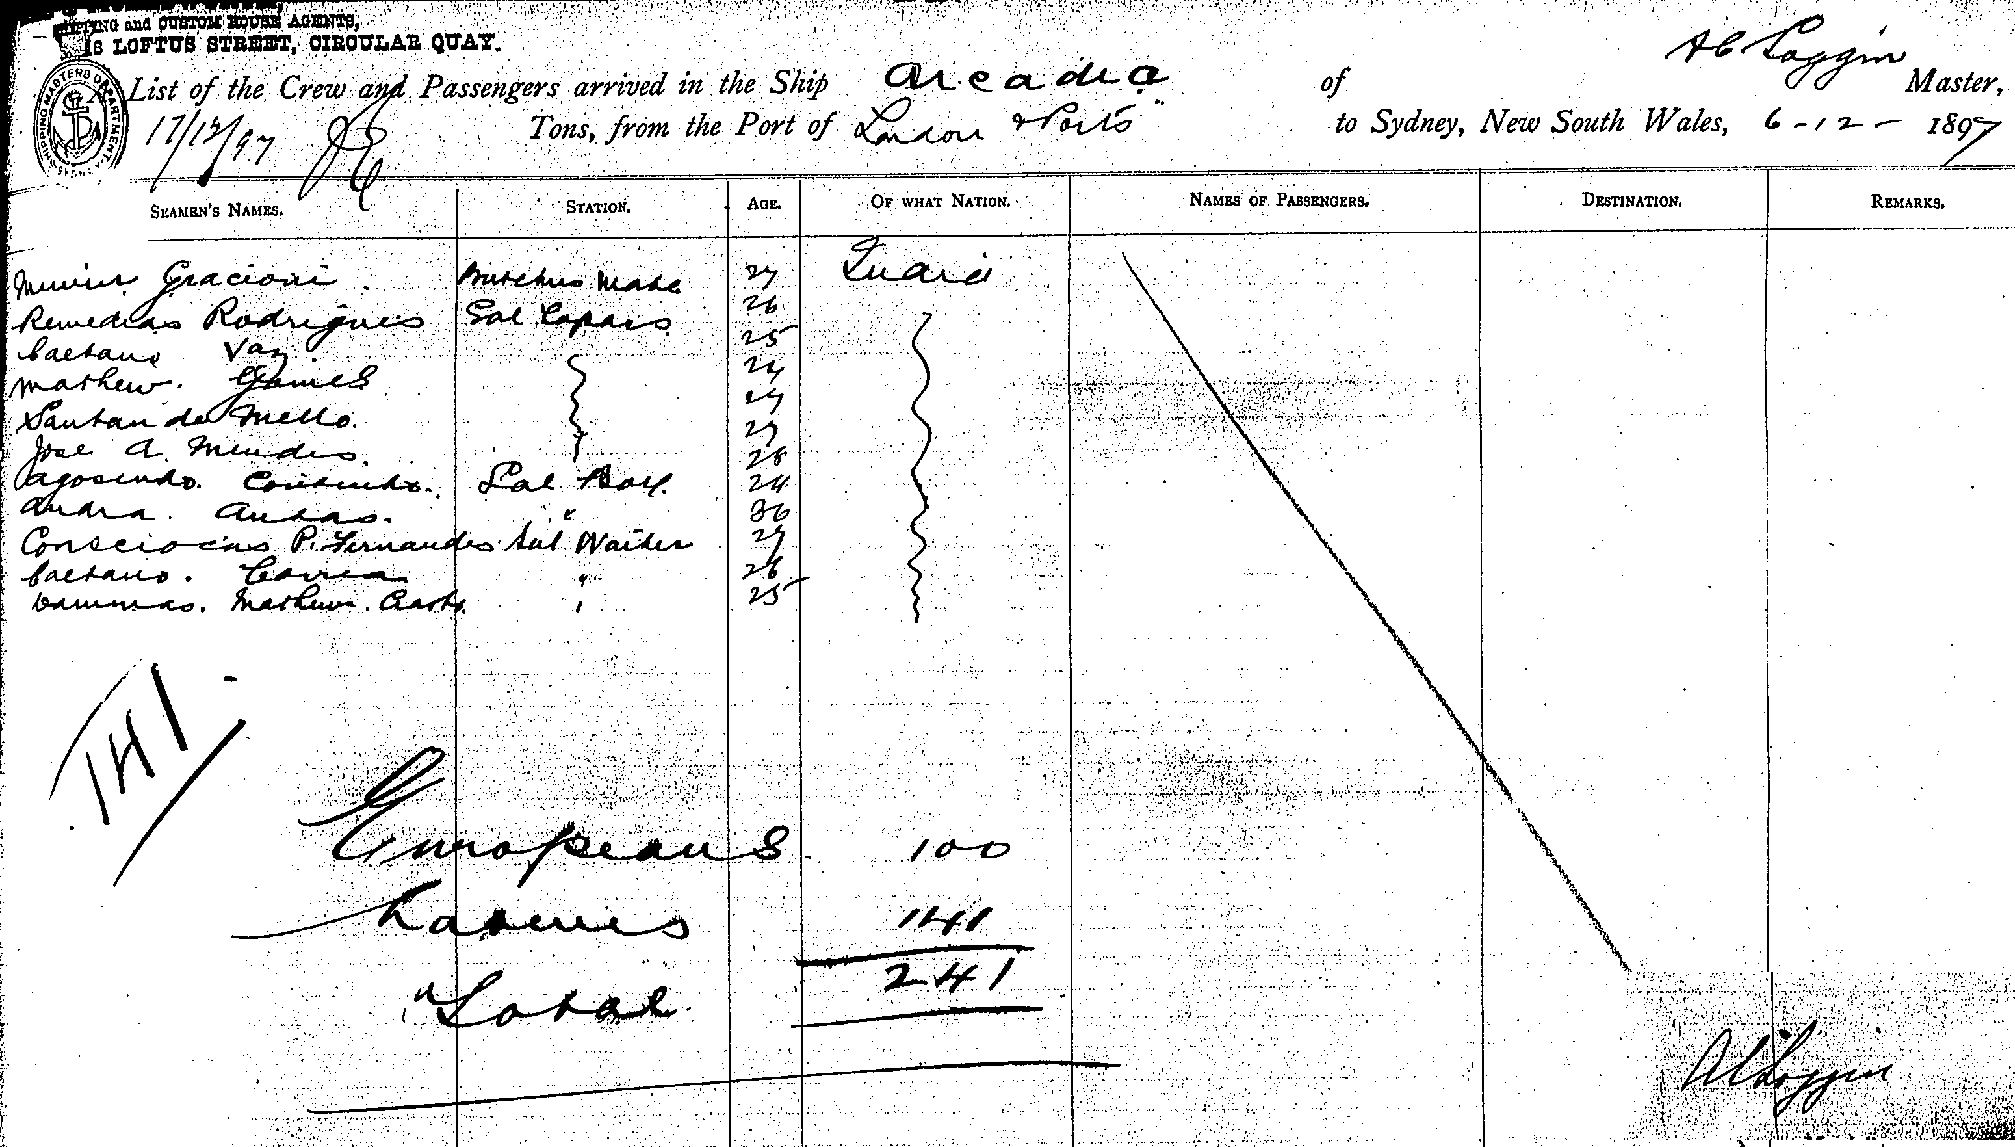 SHIPPING and CUSTOM HOUSE AGENTS,
18 LOFTUS STREET, CIRCULAR QUAY.
List of the Crew and Passengers arrived in the Ship Arcadia of A C Loggin Master,
17/12/97 Tons, from the Port of London & Ports to Sydney, New South Wales, 6-12- 1897
SHIPPING MASTERS DEPARTMENT SYDNEY
SEAMEN'S NAMES. STATION. AGE. OF WHAT NATION. NAMES OF PASSENGERS. DESTINATION. REMARKS.
Gracioni Butchers Mate 27
Remedias Rodrigues Sal 26
Caetano Vaz 25
Mathew. Gomes 24
Santan de Mello. 27
Jose A. Mendes. 27
28
Sal Boy. 24
Andra. " 36
P. Fernandes Ast Waiter 27
Caetano. Correa " 26
Mathew. 25
141
Europeans 100
Lascars 141
Total 241
A C Loggin